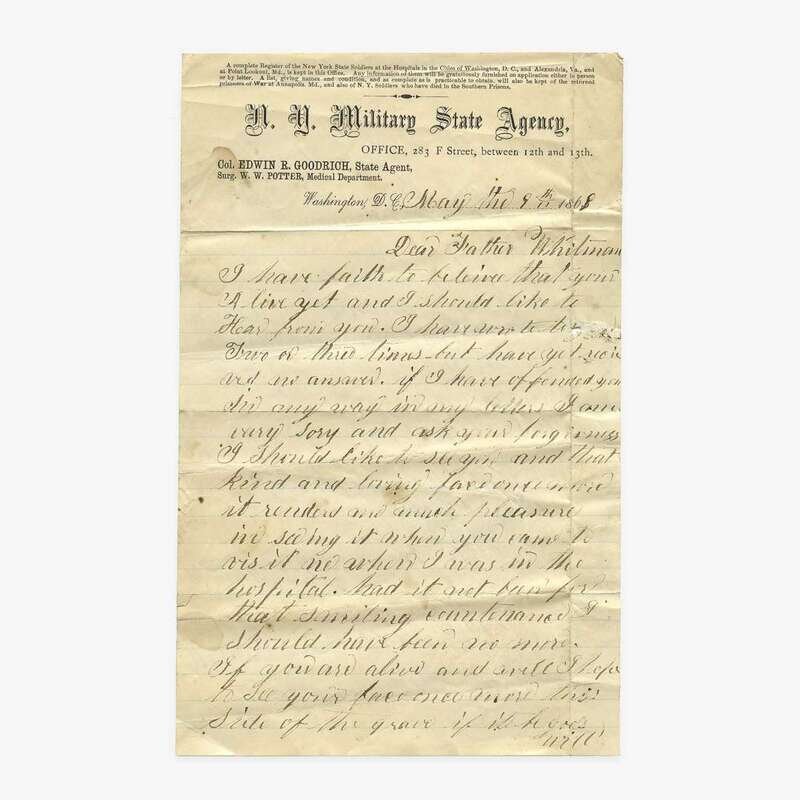 A complete Register of the New York State Soldiers at the Hospitals in the Cities of Washington, D. C., and Alexandria, Va., and
at Point Lookout, Md., is kept in this Office. Any information of them will be gratuitously furnished on application either in person
or by letter. A list, giving names and condition, and as complete as is practicable to obtain, will also be kept of the returned
prisoners of War at Annapolis, Md., and also of N. Y. Soldiers who have died in the Southern Prisons.
N. Y. Military State Agency,
OFFICE, 283 F Street, between 12th and 13th.
Col. EDWIN R. GOODRICH, State Agent,
Surg. W. W. POTTER, Medical Department.
Washington, D. C. May the 9th 1868
Dear Father Whitman
I have faith to beleive that your
A live yet and I should like to
Hear from you. I have rote to
Two or three times but have yet
no answer. if I have offended you
in any way in my letters I am
vary sory and ask your forgivness
I should like to see you and that
kind and loving face once more
it renders me much pleasure
in seeing it when you came to
vis it me when I was in the
hospital. had it not been for
that smiling countenance I
should have been no more.
If you are alive and well I hope
to see your face once more this
side of the grave if it be gods
will